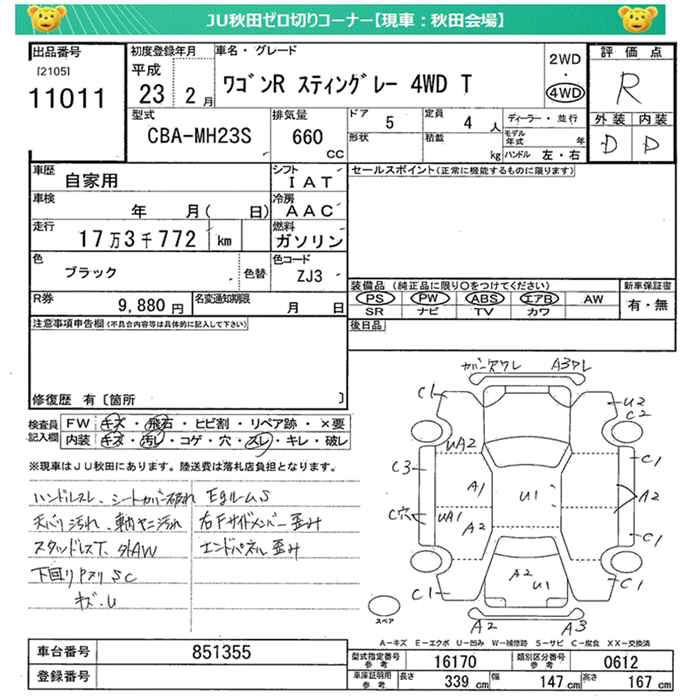 JU秋田ゼロ切りコーナー【現車：秋田会場】
出品番号
[2105]
11011
初度登録年月
平成
23 2月
車名・グレード
ワゴンR スティングレー 4WD T
2WD
・
4WD
評価点
R
外装 内装
D D
型式
CBA-MH23S
排気量
660
CC
ドア 5
形状
定員 4 人
積載 kg
ディーラー・並行
モデル年式 年
ハンドル 左・右
車歴
自家用
シフト
IAT
セールスポイント(正常に機能するものに限ります)
車検
年 月( 日)
冷房
AAC
走行
17万3千772 km
燃料
ガソリン
色
ブラック
色替
色コード
ZJ3
R券
9,880円
名変通知期限
月 日
装備品(純正品に限り○をつけてください)
新車保証書
PS PW ABS エアB AW
有・無
SR ナビ TV カワ
後日品
注意事項申告欄(不具合内容等は具体的に記入して下さい)
修復歴 有〔箇所 〕
検査員記入欄
FW キズ・飛石・ヒビ割・リペア跡・×要
内装 キズ・汚レ・コゲ・穴・スレ・キレ・破レ
※現車はJU秋田にあります。陸送費は落札店負担となります。
ハンドルスレ、シートカバー破れ EgルームS
天バリ汚れ、車内ヤニ汚れ 右Fサイドメンバー歪み
スタッドレスT、外AW エンドパネル歪み
下回りPスリ SC
キズ・U
ガバーワレ A3ワレ
C1
U2
C2
UA2
C3
C1
A1
U1
A2
C穴
UA1
A2
C1
A2
U1
C1
C1
A2
A3
スペア
A－キズ E－エクボ U－凹み W－補修跡 S－サビ C－腐食 XX－交換済
車台番号 851355
登録番号
型式指定番号参考 16170
類別区分番号参考 0612
車庫証明用参考
長さ 339 cm 幅 147 cm 高さ 167 cm